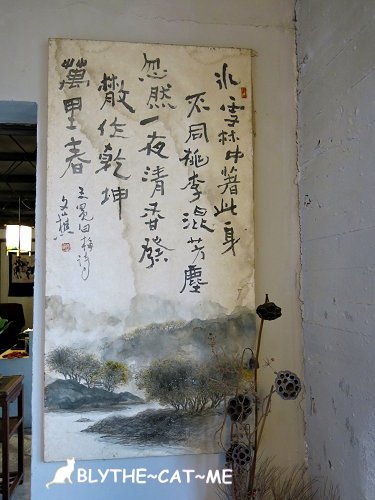 冰雪林中著此身
不同桃李混芳塵
忽然一夜清香發
散作乾坤
萬里春
王冕白梅詩
文蕉
BLYTHE~CAT~ME